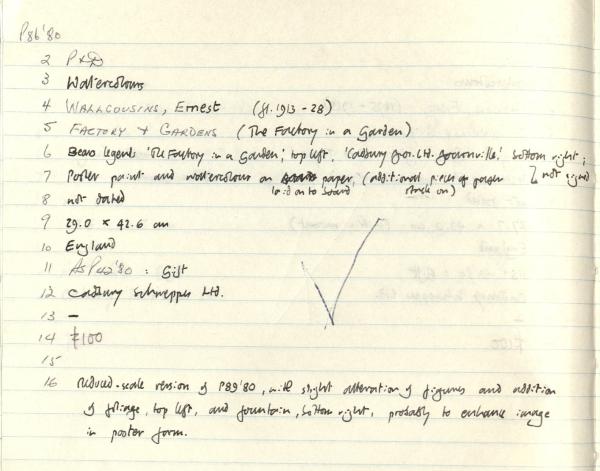 P86'80
2 P&D
3 Watercolours
4 WALLCOUSINS, Ernest (fl. 1913-28)
5 FACTORY & GARDENS (The Factory in a Garden)
6 Bears legend 'The Factory in a Garden', top left, 'Cadbury Bros. Ltd. Bournville.' bottom right;
7 Poster paint and watercolour on paper, (additional piece of paper not signed
laid on to board stuck on)
8 not dated
9 29.0 x 42.6 cm
10 England
11 AsP42'80 : Gift
12 Cadbury Schweppes Ltd.
13 –
14 £100
15
16 reduced-scale version of P89'80, with slight alteration of figures and addition
of foliage, top left, and fountain, bottom right, probably to enhance image
in poster form.